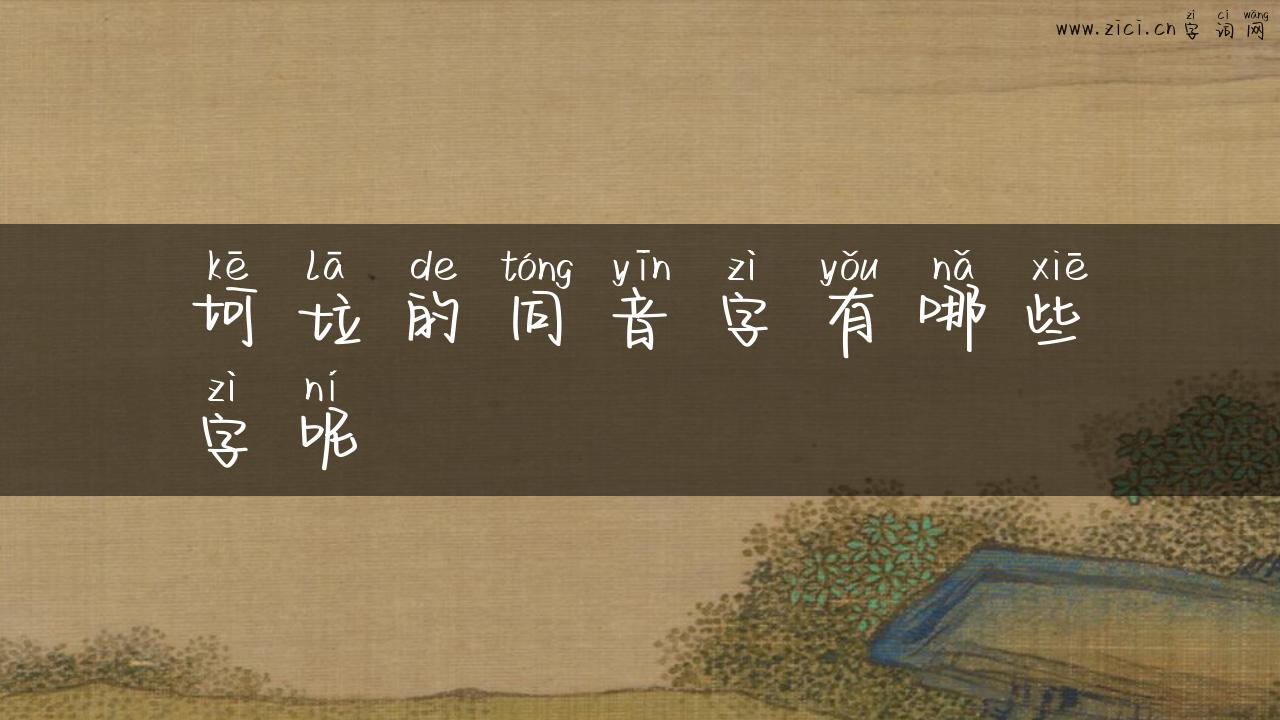 zì cí wǎng
www.zici.cn 字词网
kē lā de tóng yīn zì yǒu nǎ xiē
坷垃的同音字有哪些
zì ní
字呢